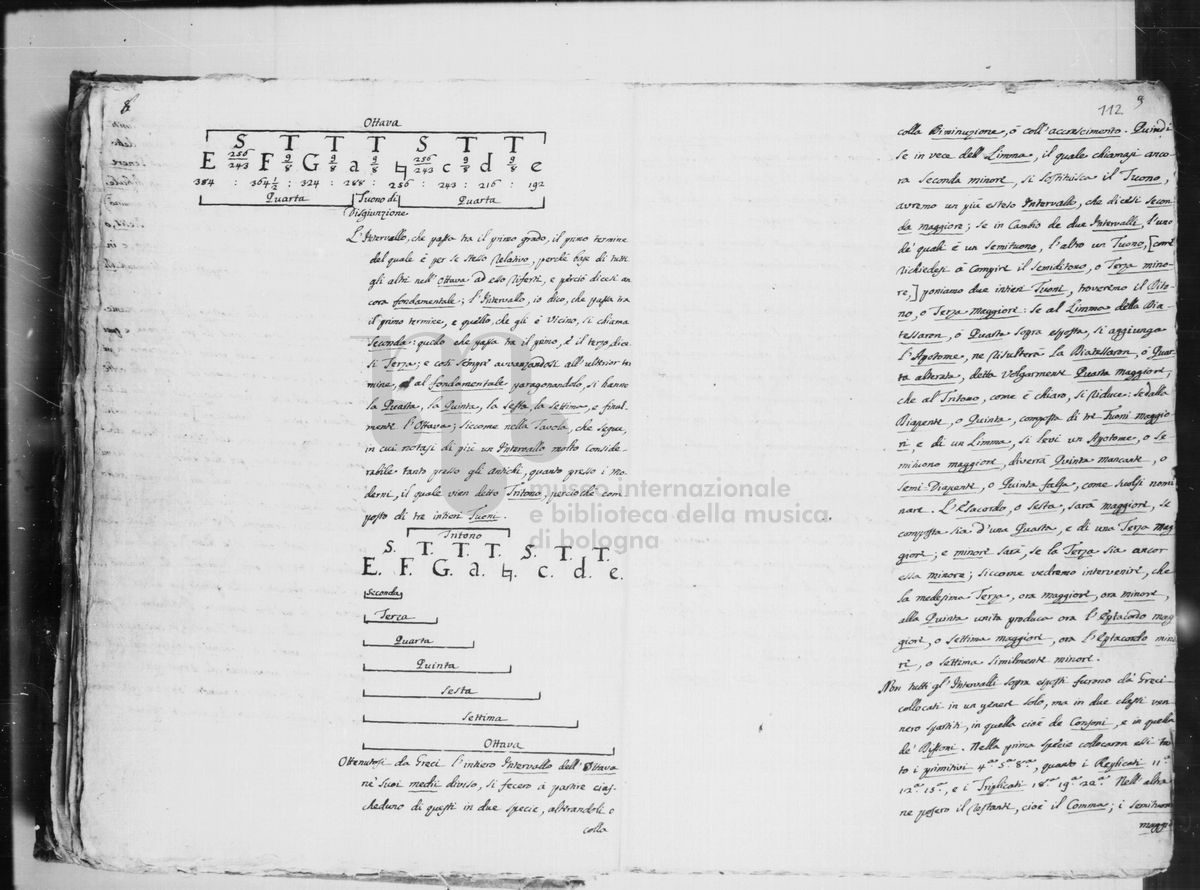 8
Ottava
S T T T S T T
E 256/243 F 9/8 G 9/8 a 9/8 ♮ 256/243 c 9/8 d 9/8 e
384 : 364½ : 324 : 288 : 256 : 243 : 216 : 192
Quarta Tuono di Quarta
Disgiunzione
L'Intervallo, che passa tra il primo grado, il primo termine
del quale è per se stesso Relativo, perchè base di tutti
gli altri nell'Ottava ad esso riferti, e perciò dicesi an
cora fondamentale; l'Intervallo, io dico, che passa tra
il primo termine, e quello, che gli è vicino, si chiama
Seconda: quello che passa tra il primo, e il terzo, dice
si Terza; e così sempre avvanzandosi all'ulterior ter
mine, al fondamentale paragonandolo, si hanno
la Quarta, la Quinta, la Sesta, la Settima, e final
mente l'Ottava; siccome nella Tavola, che segue,
in cui notasi di più un Intervallo molto conside
rabile tanto presso gli Antichi, quanto presso i mo
derni, il quale vien detto Tritono, perciochè com
posto di tre intieri Tuoni.
Tritono
S. T. T. T. S. T. T.
E. F. G. a. ♮. c. d. e.
Seconda
Terza
Quarta
Quinta
Sesta
Settima
Ottava
Ottenutosi da Greci l'intiero Intervallo dell'Ottava
ne' suoi medii diviso, si fecero a partire cias
cheduno di questi in due specie, alterandoli o
colla
112 9
colla Diminuzione, ò coll'accrescimento. Quindi
se in vece dell'Limma, il quale chiamasi anco
ra Seconda minore, si sostituisca il Tuono,
avremo un più esteso Intervallo, che dicesi Secon
da maggiore; se in Cambio de due Intervalli, l'uno
de' quali è un Semituono, l'altro un Tuono, [come
richiedesi à compire il semiditono, o Terza mino
re,] poniamo due intieri Tuoni, troveremo il Dito
no, o Terza maggiore: se al Limma della Dia
tessaron, ò Quarta sopra esposta, si aggiunga
l'Apotome, ne risulterà la Diatessaron, ò Quar
ta alterata, detta volgarmente Quarta maggiore,
che al Tritono, come è chiaro, si riduce: se dalla
Diapente, o Quinta, composta di tre Tuoni maggio
ri, e di un Limma, si levi un Apotome, o Se
mituono maggiore, diverrà Quinta mancante, o
Semi-Diapente, o Quinta falsa, come suolsi nomi
nare. L'Esacordo, o Sesta, sarà maggiore, se
composta sia d'una Quarta, e di una Terza mag
giore; e minore sarà, se la Terza sia ancor
essa minore; siccome vedremo intervenire, che
la medesima Terza, ora maggiore, ora minore,
alla Quinta unita produca ora l'Eptacordo mag
giore, o settima maggiore, ora l'Eptacordo mino
re, o settima similmente minore.
Non tutti gl'Intervalli sopra esposti furono da' Greci
collocati in un genere solo, ma in due classi ven
nero spartiti, in quella cioè de Consoni, e in quella
de' Dissoni. Nella prima specie collocarono essi tan
to i primitivi 4ª 5ª 8ª, quanto i Replicati 11ª
12ª 15ª, e i Triplicati 18ª 19ª 22ª. Nell'altra
ne posero il restante, cioè il Comma; i Semituoni
maggio
museo internazionale
e biblioteca della musica
di bologna